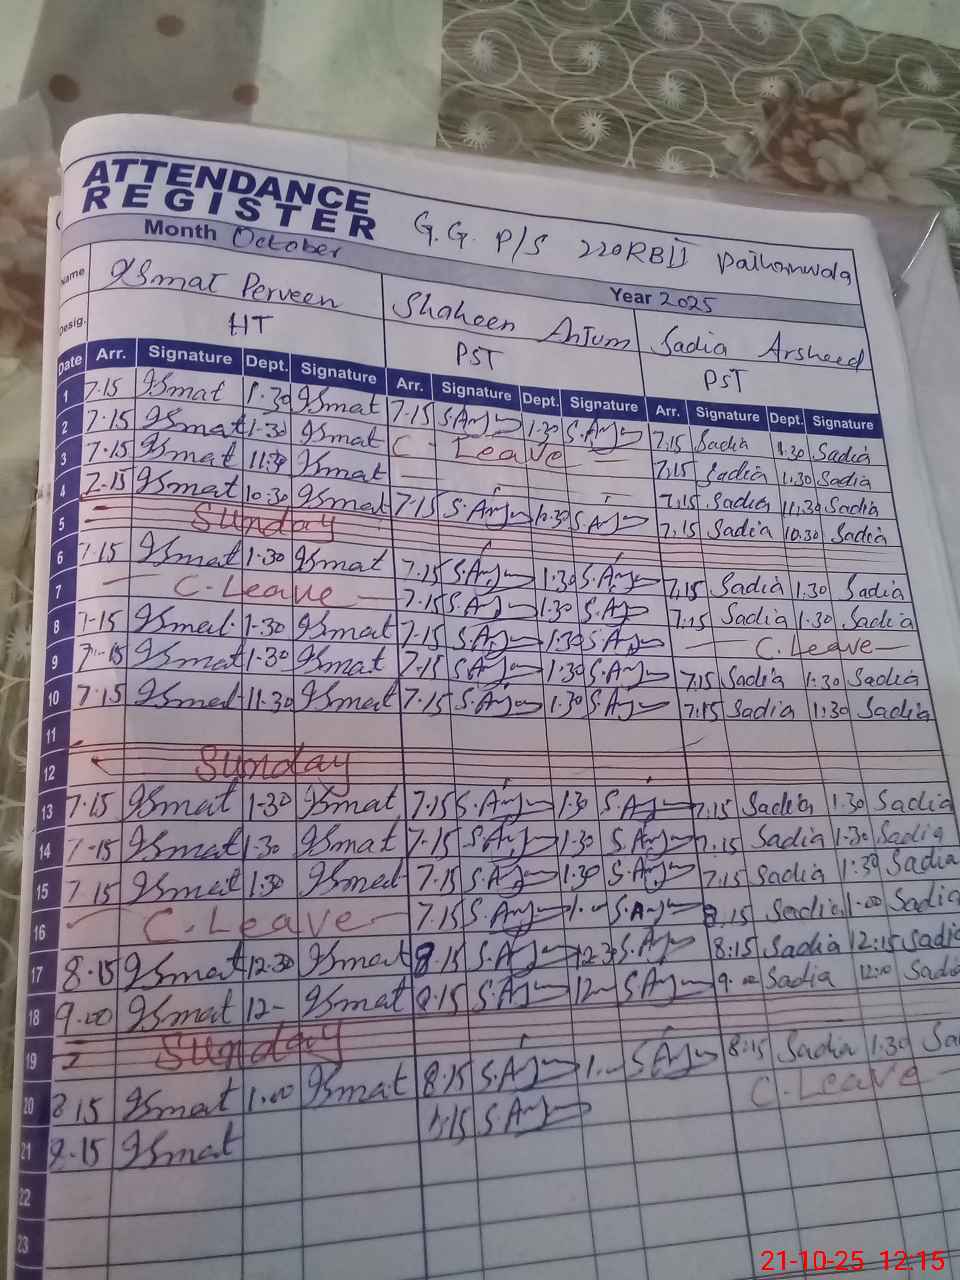 ATTENDANCE
REGISTER
G.G. P/S 220RBII
Month October
Year 2025
Name Ismat Perveen Shaheen Anjum Sadia Arsheed
Desig. HT PST PST
Date Arr. Signature Dept. Signature Arr. Signature Dept. Signature Arr. Signature Dept. Signature
1 7.15 Ismat 1.30 Ismat 7.15 S.Anjum 1.30 S.Anjum 7.15 Sadia 1.30 Sadia
2 7.15 Ismat 1-30 Ismat C - Leave 7.15 Sadia 1.30 Sadia
3 7.15 Ismat 11.30 Ismat 7.15 Sadia 11.30 Sadia
4 7.15 Ismat 10.30 Ismat 7.15 S.Anjum 10.30 S.Anjum 7.15 Sadia 10.30 Sadia
5 Sunday
6 7.15 Ismat 1.30 Ismat 7.15 S.Anjum 1.30 S.Anjum 7.15 Sadia 1.30 Sadia
7 C.Leave 7.15 S.Anjum 1.30 S.Anjum 7.15 Sadia 1.30 Sadia
8 7-15 Ismat 1-30 Ismat 7-15 S.Anjum 1.30 S.Anjum C.Leave
9 7-15 Ismat 1-30 Ismat 7.15 S.Anjum 1.30 S.Anjum 7.15 Sadia 1.30 Sadia
10 7.15 Ismat 11.30 Ismat 7.15 S.Anjum 1.30 S.Anjum 7.15 Sadia 1.30 Sadia
11
12 Sunday
13 7.15 Ismat 1-30 Ismat 7.15 S.Anjum 1.30 S.Anjum 7.15 Sadia 1.30 Sadia
14 7-15 Ismat 1-30 Ismat 7.15 S.Anjum 1.30 S.Anjum 7.15 Sadia 1.30 Sadia
15 7.15 Ismat 1.30 Ismat 7.15 S.Anjum 1.30 S.Anjum 7.15 Sadia 1.30 Sadia
16 C.Leave 7.15 S.Anjum 1.00 S.Anjum 8.15 Sadia 1.00 Sadia
17 8.15 Ismat 12.30 Ismat 8.15 S.Anjum 12.30 S.Anjum 8:15 Sadia 12:15 Sadia
18 9.00 Ismat 12- Ismat 8.15 S.Anjum 12 S.Anjum 9.00 Sadia 12:00 Sadia
19 Sunday
20 8.15 Ismat 1.00 Ismat 8.15 S.Anjum 1.00 S.Anjum 8:15 Sadia 1.30 Sa
21 8.15 Ismat 8.15 S.Anjum C.Leave
22
23
21-10-25 12:15